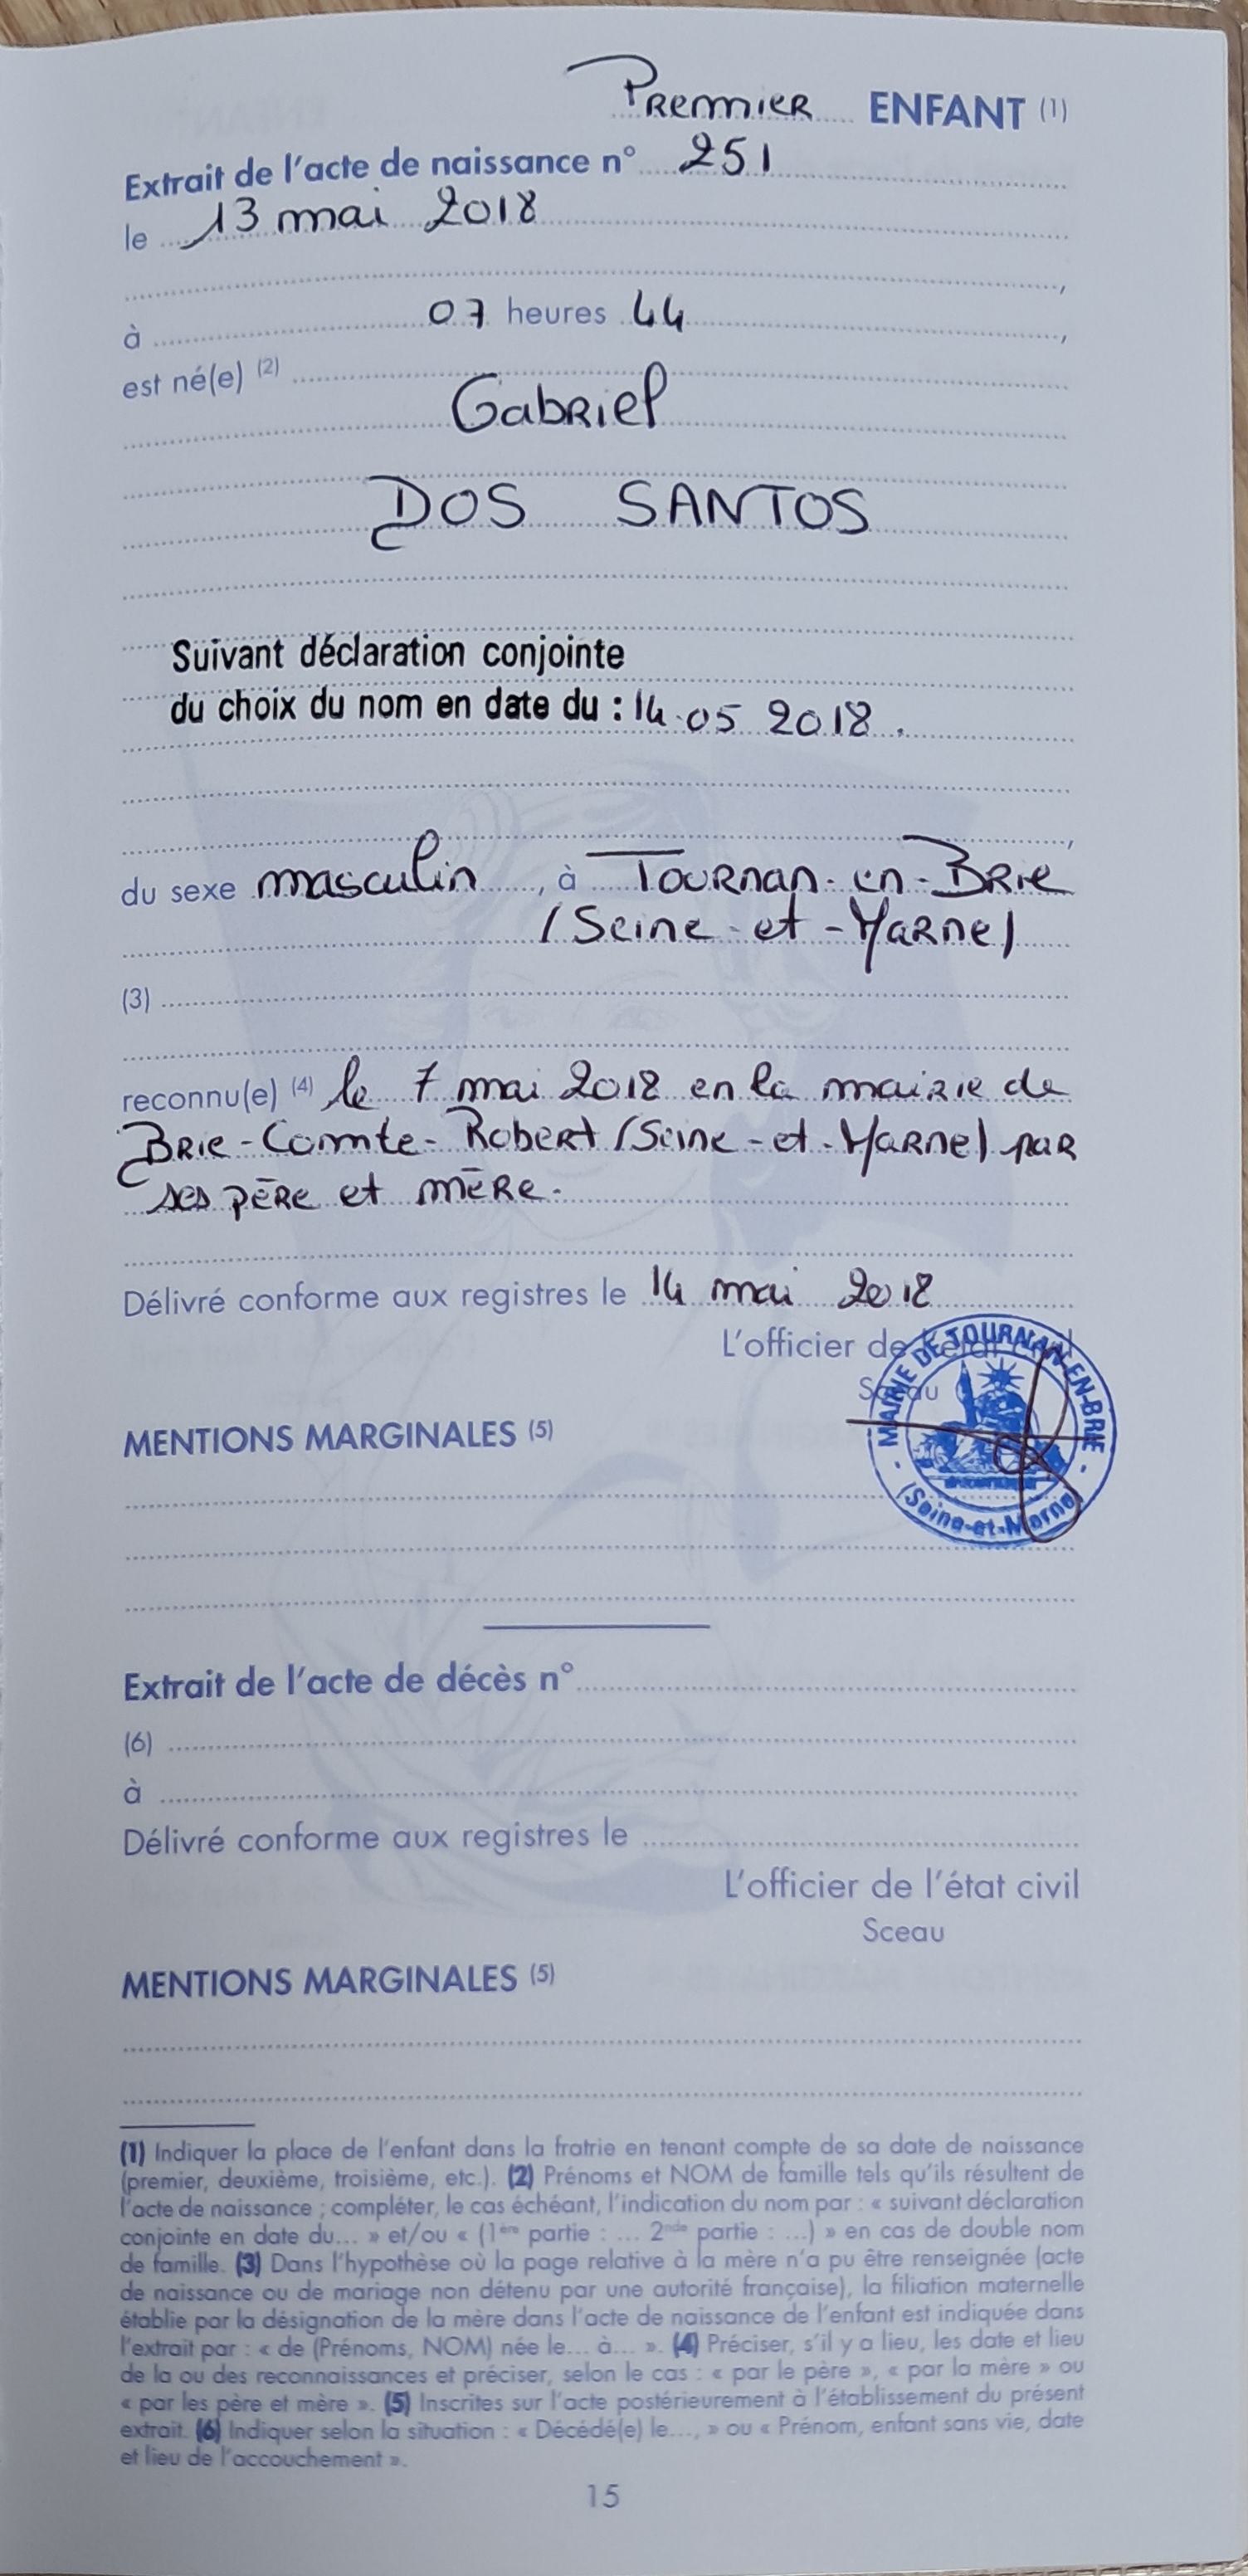 Premier ENFANT (1)
Extrait de l'acte de naissance n° 251
le 13 mai 2018
,
à 07 heures 44 ,
est né(e) (2)
Gabriel
DOS SANTOS
Suivant déclaration conjointe
du choix du nom en date du : 14.05 2018.
,
du sexe masculin, à Tournan-en-Brie
(Seine-et-Marne)
(3)
reconnu(e) (4) le 7 mai 2018 en la mairie de
Brie-Comte-Robert (Seine-et-Marne) par
ses père et mère.
Délivré conforme aux registres le 14 mai 2018
L'officier de l'état civil
Sceau
MAIRIE DE TOURNAN-EN-BRIE
(Seine-et-Marne)
MENTIONS MARGINALES (5)
Extrait de l'acte de décès n°
(6)
à
Délivré conforme aux registres le
L'officier de l'état civil
Sceau
MENTIONS MARGINALES (5)
(1) Indiquer la place de l'enfant dans la fratrie en tenant compte de sa date de naissance
(premier, deuxième, troisième, etc.). (2) Prénoms et NOM de famille tels qu'ils résultent de
l'acte de naissance ; compléter, le cas échéant, l'indication du nom par : « suivant déclaration
conjointe en date du... » et/ou « (1ère partie : ... 2nde partie : ...) » en cas de double nom
de famille. (3) Dans l'hypothèse où la page relative à la mère n'a pu être renseignée (acte
de naissance ou de mariage non détenu par une autorité française), la filiation maternelle
établie par la désignation de la mère dans l'acte de naissance de l'enfant est indiquée dans
l'extrait par : « de (Prénoms, NOM) née le... à... ». (4) Préciser, s'il y a lieu, les date et lieu
de la ou des reconnaissances et préciser, selon le cas : « par le père », « par la mère » ou
« par les père et mère ». (5) Inscrites sur l'acte postérieurement à l'établissement du présent
extrait. (6) Indiquer selon la situation : « Décédé(e) le..., » ou « Prénom, enfant sans vie, date
et lieu de l'accouchement ».
15